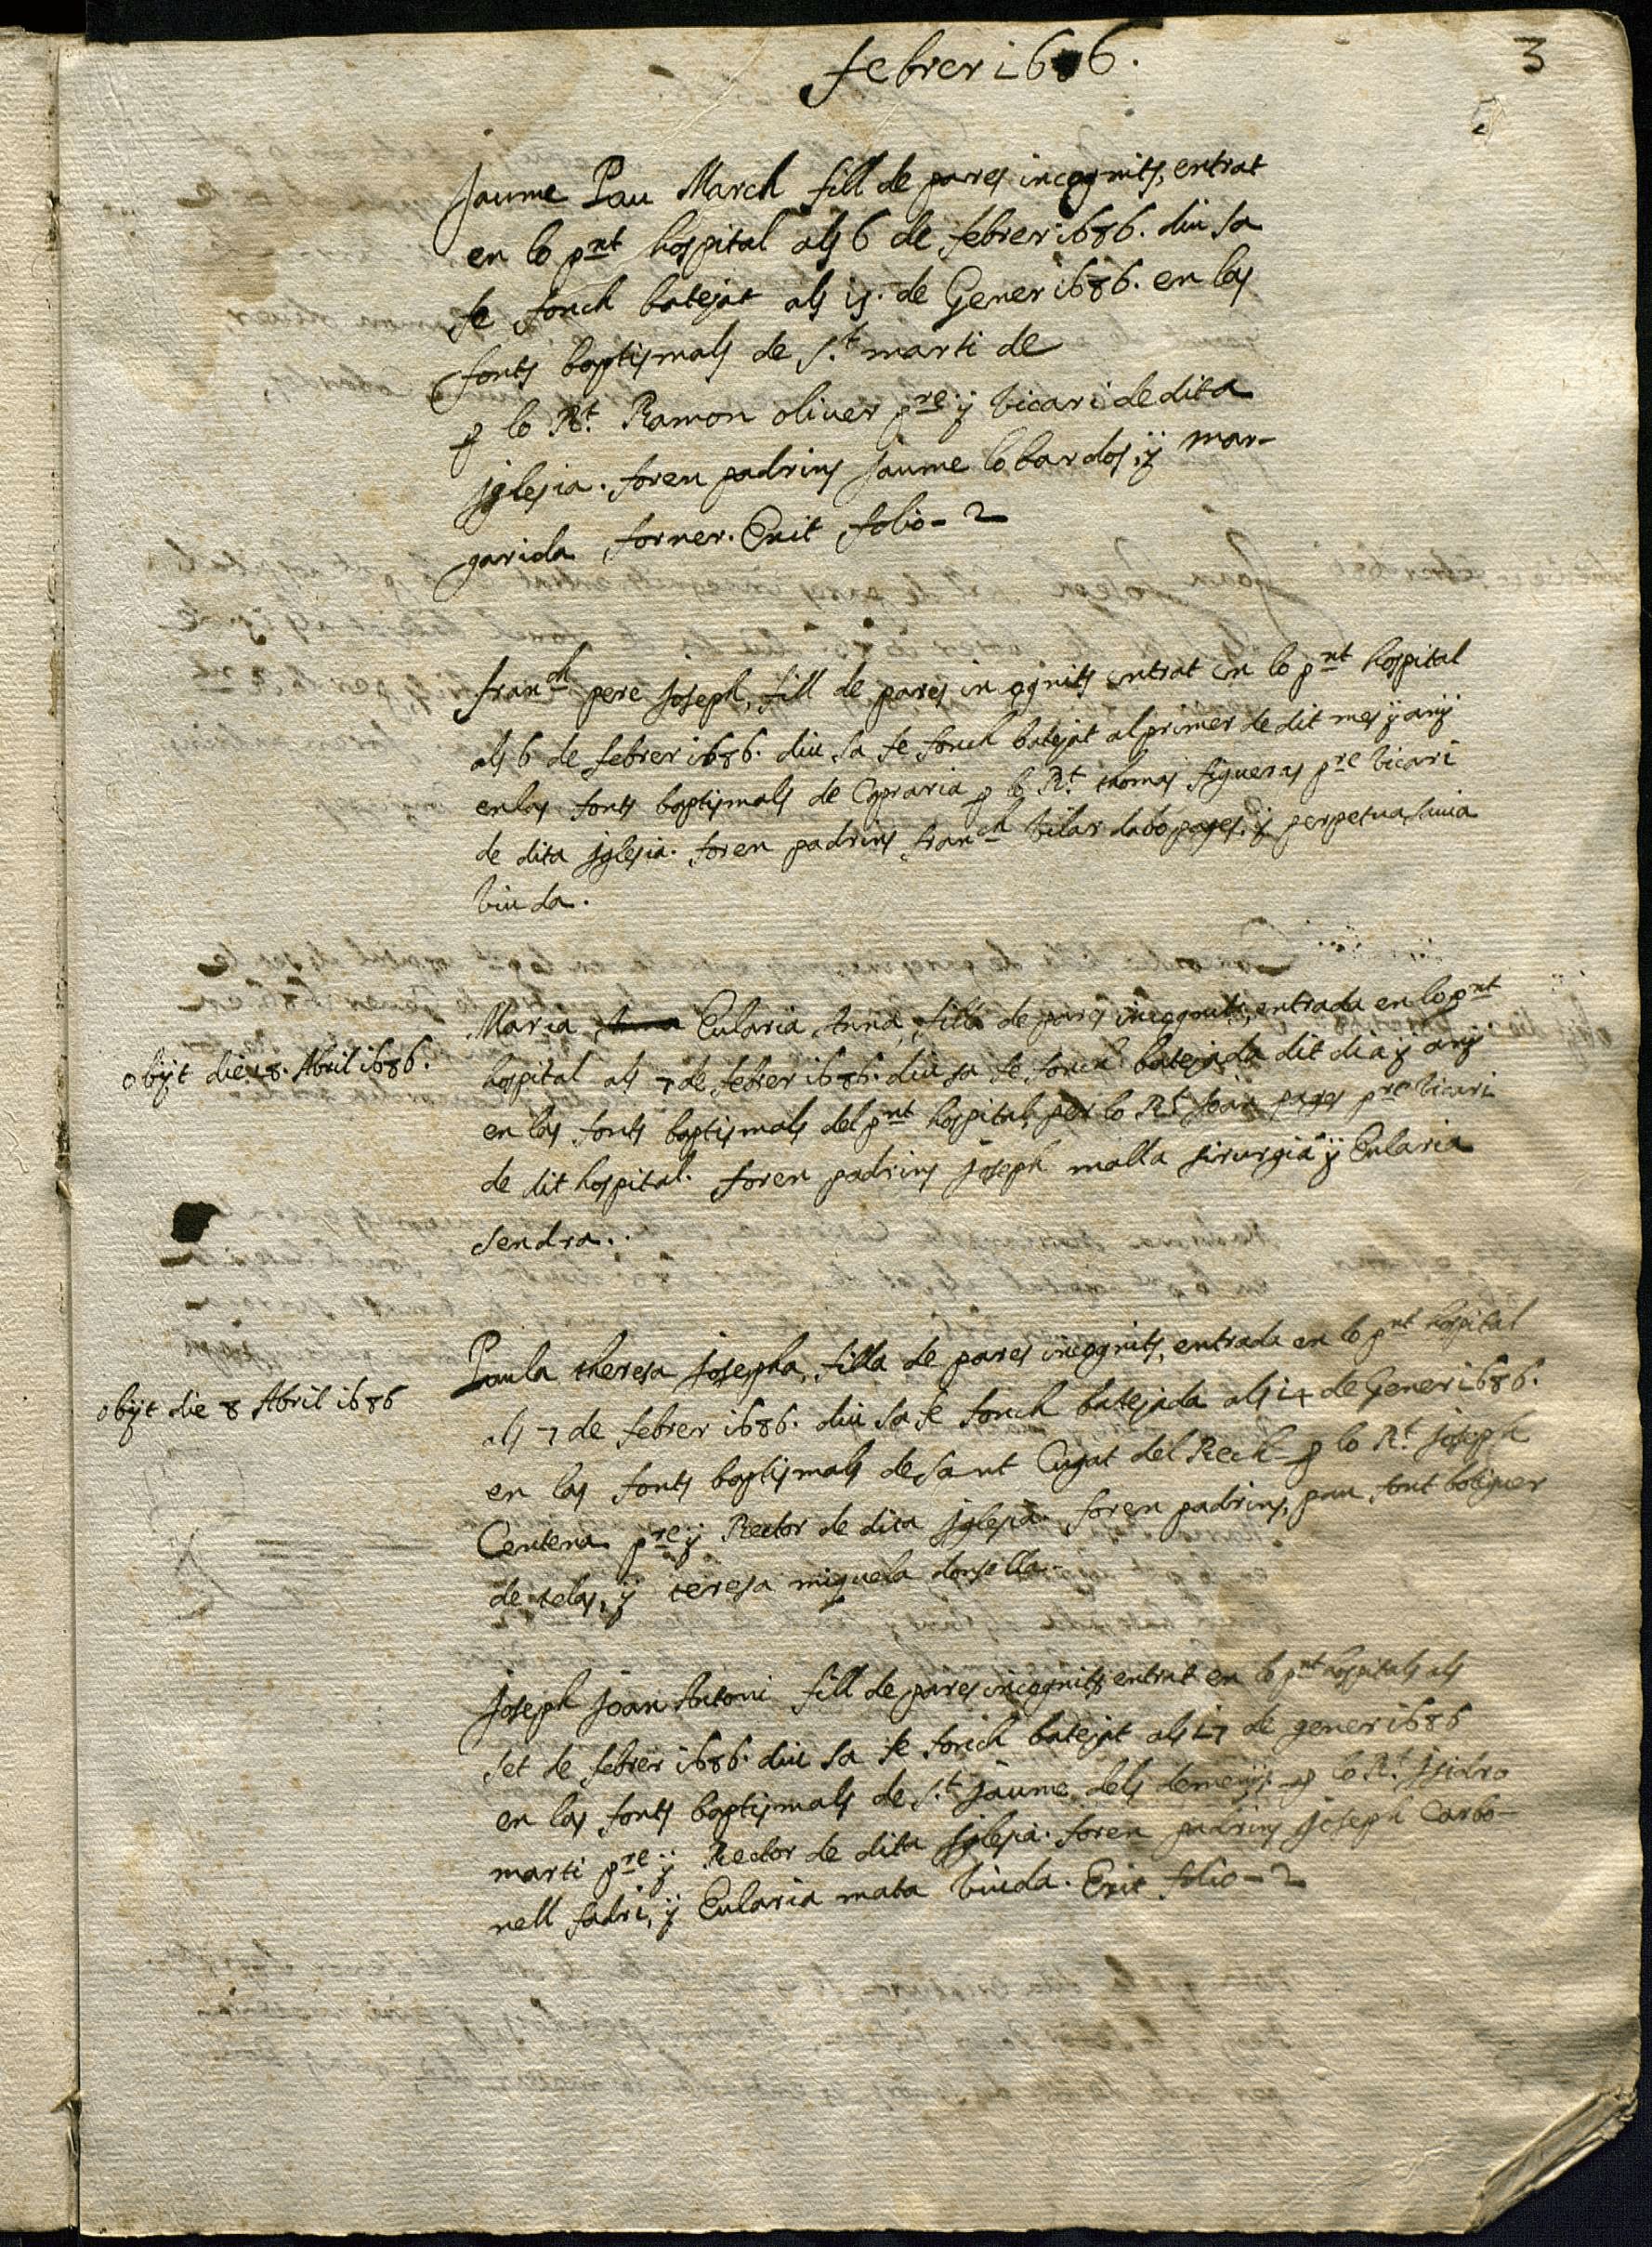 febrer 1686.
3
Jaume Pau March fill de pares incognits, entrat
en lo pnt hospital als 6 de febrer 1686. diu sa
se fonch batejat als 15. de Gener 1686. en las
fonts baptismals de St. marti de
p lo Rt. Ramon oliver pre. y vicari de dita
jglesia. foren padrins Jaume lobardos, y mar-
garida forner. Exit folio - 2
franch pere joseph, fill de pares incognits entrat en lo pnt hospital
als 6 de febrer 1686. diu sa se fonch batejat al primer de dit mes y any
en las fonts baptismals de Copraria p lo Rt. thomas figueras pre vicari
de dita jglesia. foren padrins franch vilar dabo pages, y perpetua
viuda.
Maria Anna Eularia Anna, filla de pares incognits, entrada en lo pnt
hospital als 7 de febrer 1686. diu sa se fonch batejada dit dia y any
en las fonts baptismals del pnt hospital, per lo Rt. Joan pages pre vicari
de dit hospital. foren padrins joseph malla sirurgia y Eularia
sendra..
obijt die 18. Abril 1686.
Paula theresa josepha, filla de pares incognits, entrada en lo pnt hospital
als 7 de febrer 1686. diu sa se fonch batejada als 14 de Gener 1686.
en las fonts baptismals de sant Cugat del Rech p lo Rt. joseph
Centena pre y Rector de dita jglesia. foren padrins, pau font botiguer
de telas, y teresa miquela donsella.
obijt die 8 Abril 1686
joseph joan Antoni fill de pares incognits entrat en lo pnt hospitals als
set de febrer 1686. diu sa se fonch batejat als 17 de gener 1686
en las fonts baptismals de St. jaume dels domenys. p lo Rt. jsidro
marti pre y Rector de dita jglesia. foren padrins joseph Carbo-
nell fadri, y Eularia mata viuda. Exit folio - 2